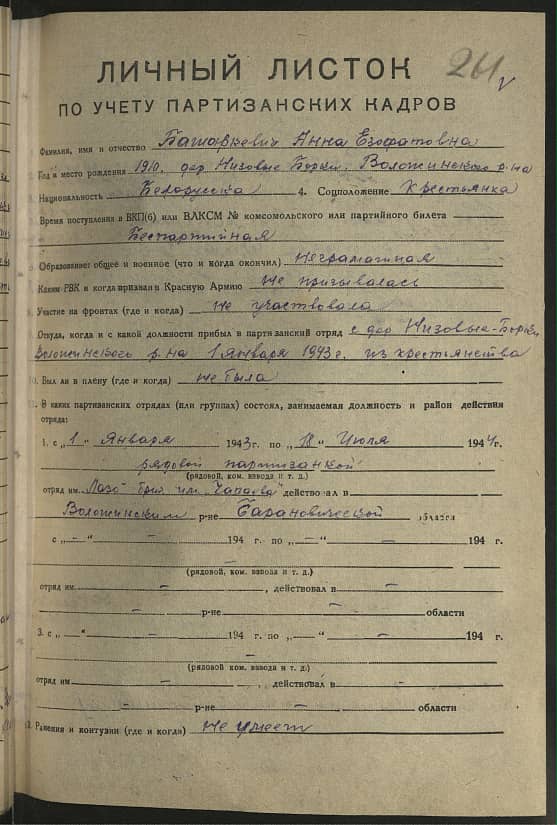 ЛИЧНЫЙ ЛИСТОК 261
ПО УЧЕТУ ПАРТИЗАНСКИХ КАДРОВ
Фамилия, имя и отчество Башаркевич Анна Езофатовна
2. Год и место рождения 1910. дер. Низовые Борки. Воложинского р-на
Национальность Белорусска 4. Соцположение Крестьянка
Время поступления в ВКП(б) или ВЛКСМ № комсомольского или партийного билета
Беспартийная
Образование: общее и военное (что и когда окончил) Неграмотная
Каким РВК и когда призван в Красную Армию Не призывалась
Участие на фронтах (где и когда) Не участвовала
Откуда, когда и с какой должности прибыл в партизанский отряд с дер Низовые-Борки
Воложинского р-на 1 января 1943 г. из крестьянства
10. Был ли в плену (где и когда) не была
11. В каких партизанских отрядах (или группах) состоял, занимаемая должность и район действия
отряда:
1. с „1" Января 1943 г. по „18" Июля 1944 г.
рядовой партизанкой
(рядовой, ком. взвода и т. д.)
отряд им. Лазо бриг. им. Чапаева действовал в
Воложинским р-не Барановической области
с „—" — 194 г. по „—" — 194 г.
(рядовой, ком. взвода и т. д.)
отряд им — , действовал в —
р-не — области
3. с „—" — 194 г. по „—" — 194 г.
—
(рядовой, ком. взвода и т. д.)
отряд им — , действовал в —
— р-не — области
12. Ранения и контузии (где и когда) не имеет